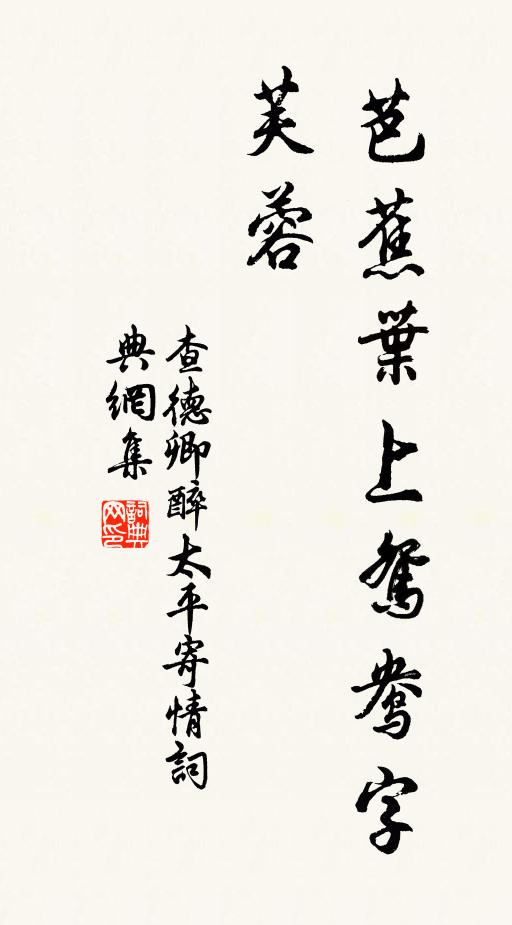 芭蕉葉上鴛鴦字
芙蓉
查德卿醉太平寄情詞
典網集
詞典
网印